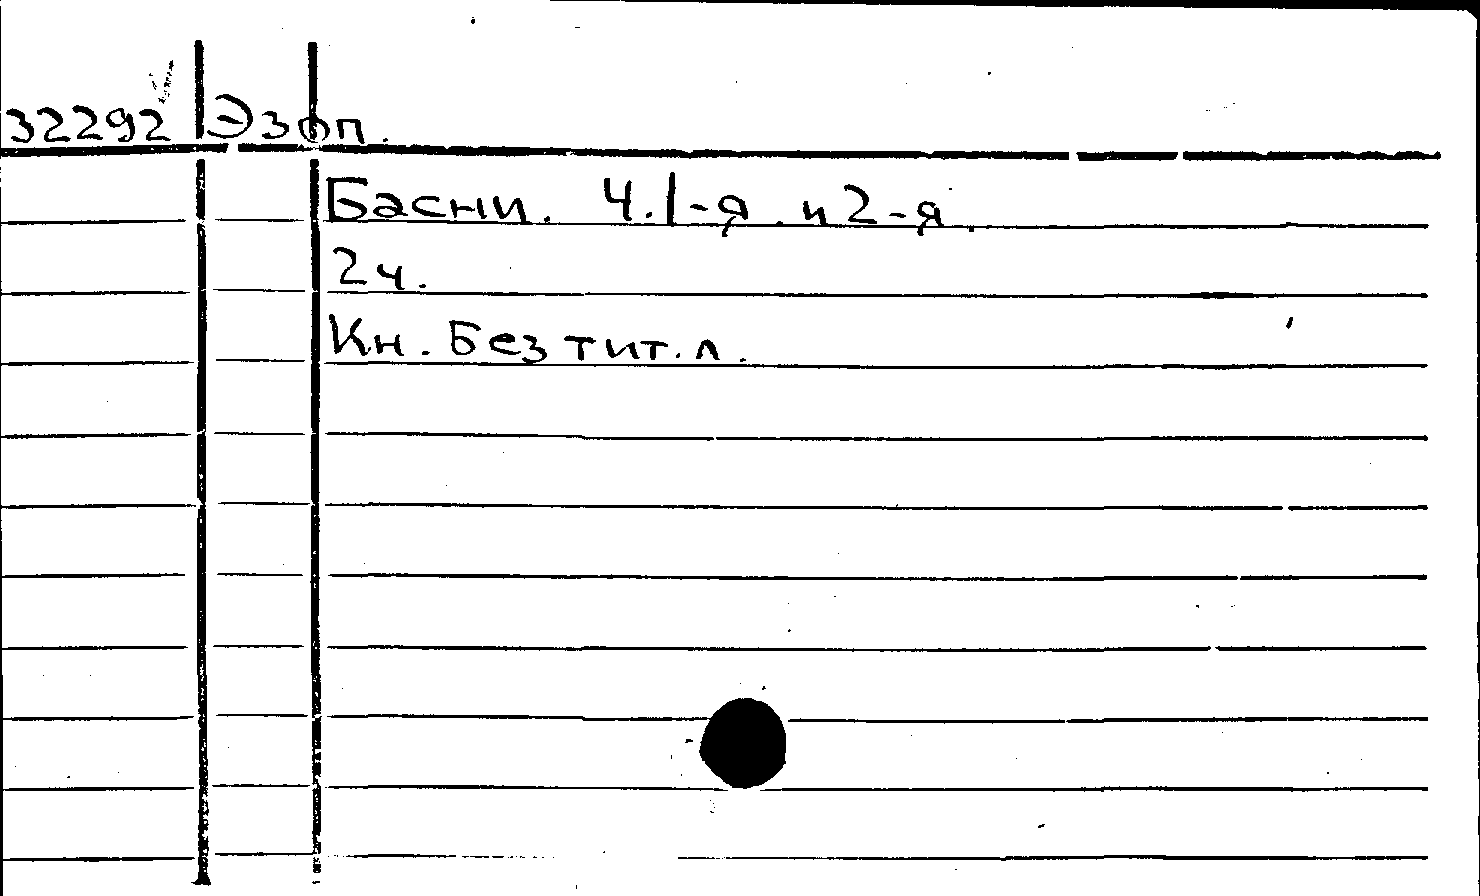 32292 Эзоп.
Басни. Ч. 1-я и 2-я.
2 ч.
Кн. без тит. л.